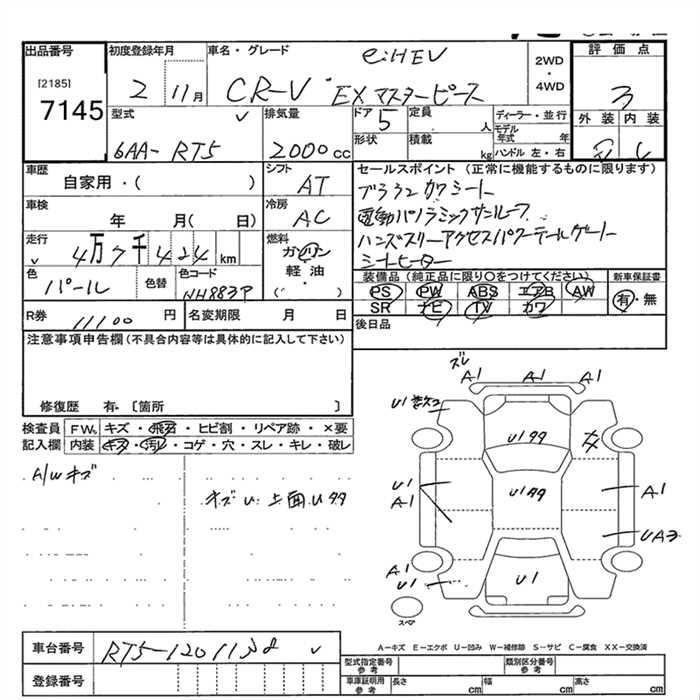 出品番号
[2185]
7145
初度登録年月
2 11月
車名・グレード
e:HEV
CR-V EX マスターピース
2WD
・
4WD
評価点
3
外装 内装
型式
6AA- RT5
排気量
2000cc
ドア 5
定員 人
形状
積載 kg
ディーラー・並行
モデル年式 年
ハンドル 左・右
車歴
自家用・( )
シフト
AT
車検
年 月( 日)
冷房
AC
走行
4万7千424km
燃料
ガソリン
軽油・
( )
色
パール
色替
色コード
NH883P
セールスポイント(正常に機能するものに限ります)
ブラウン カワシート
電動パノラミックサンルーフ
ハンズフリーアクセスパワーテールゲート
シートヒーター
装備品(純正品に限り○をつけてください)
PS PW ABS エアB AW
SR ナビ TV カワ
新車保証書
有・無
R券 11100 円
名変期限 月 日
後日品
注意事項申告欄(不具合内容等は具体的に記入して下さい)
修復歴 有・〔箇所 〕
検査員記入欄
FW. キズ・飛石・ヒビ割・リペア跡・×要
内装 キズ・汚れ・コゲ・穴・スレ・キレ・破レ
A/Wキズ
キズ U. 上面U99
ズレ
A1 A1 A1
U1
U199
U1
A1
U199
A1
UA3
A1
U1
U1
スペア
A-キズ E-エクボ U-凹み W-補修跡 S-サビ C-腐食 XX-交換済
車台番号
登録番号
型式指定番号
参考
類別区分番号
参考
車庫証明用
参考
長さ cm
幅 cm
高さ cm